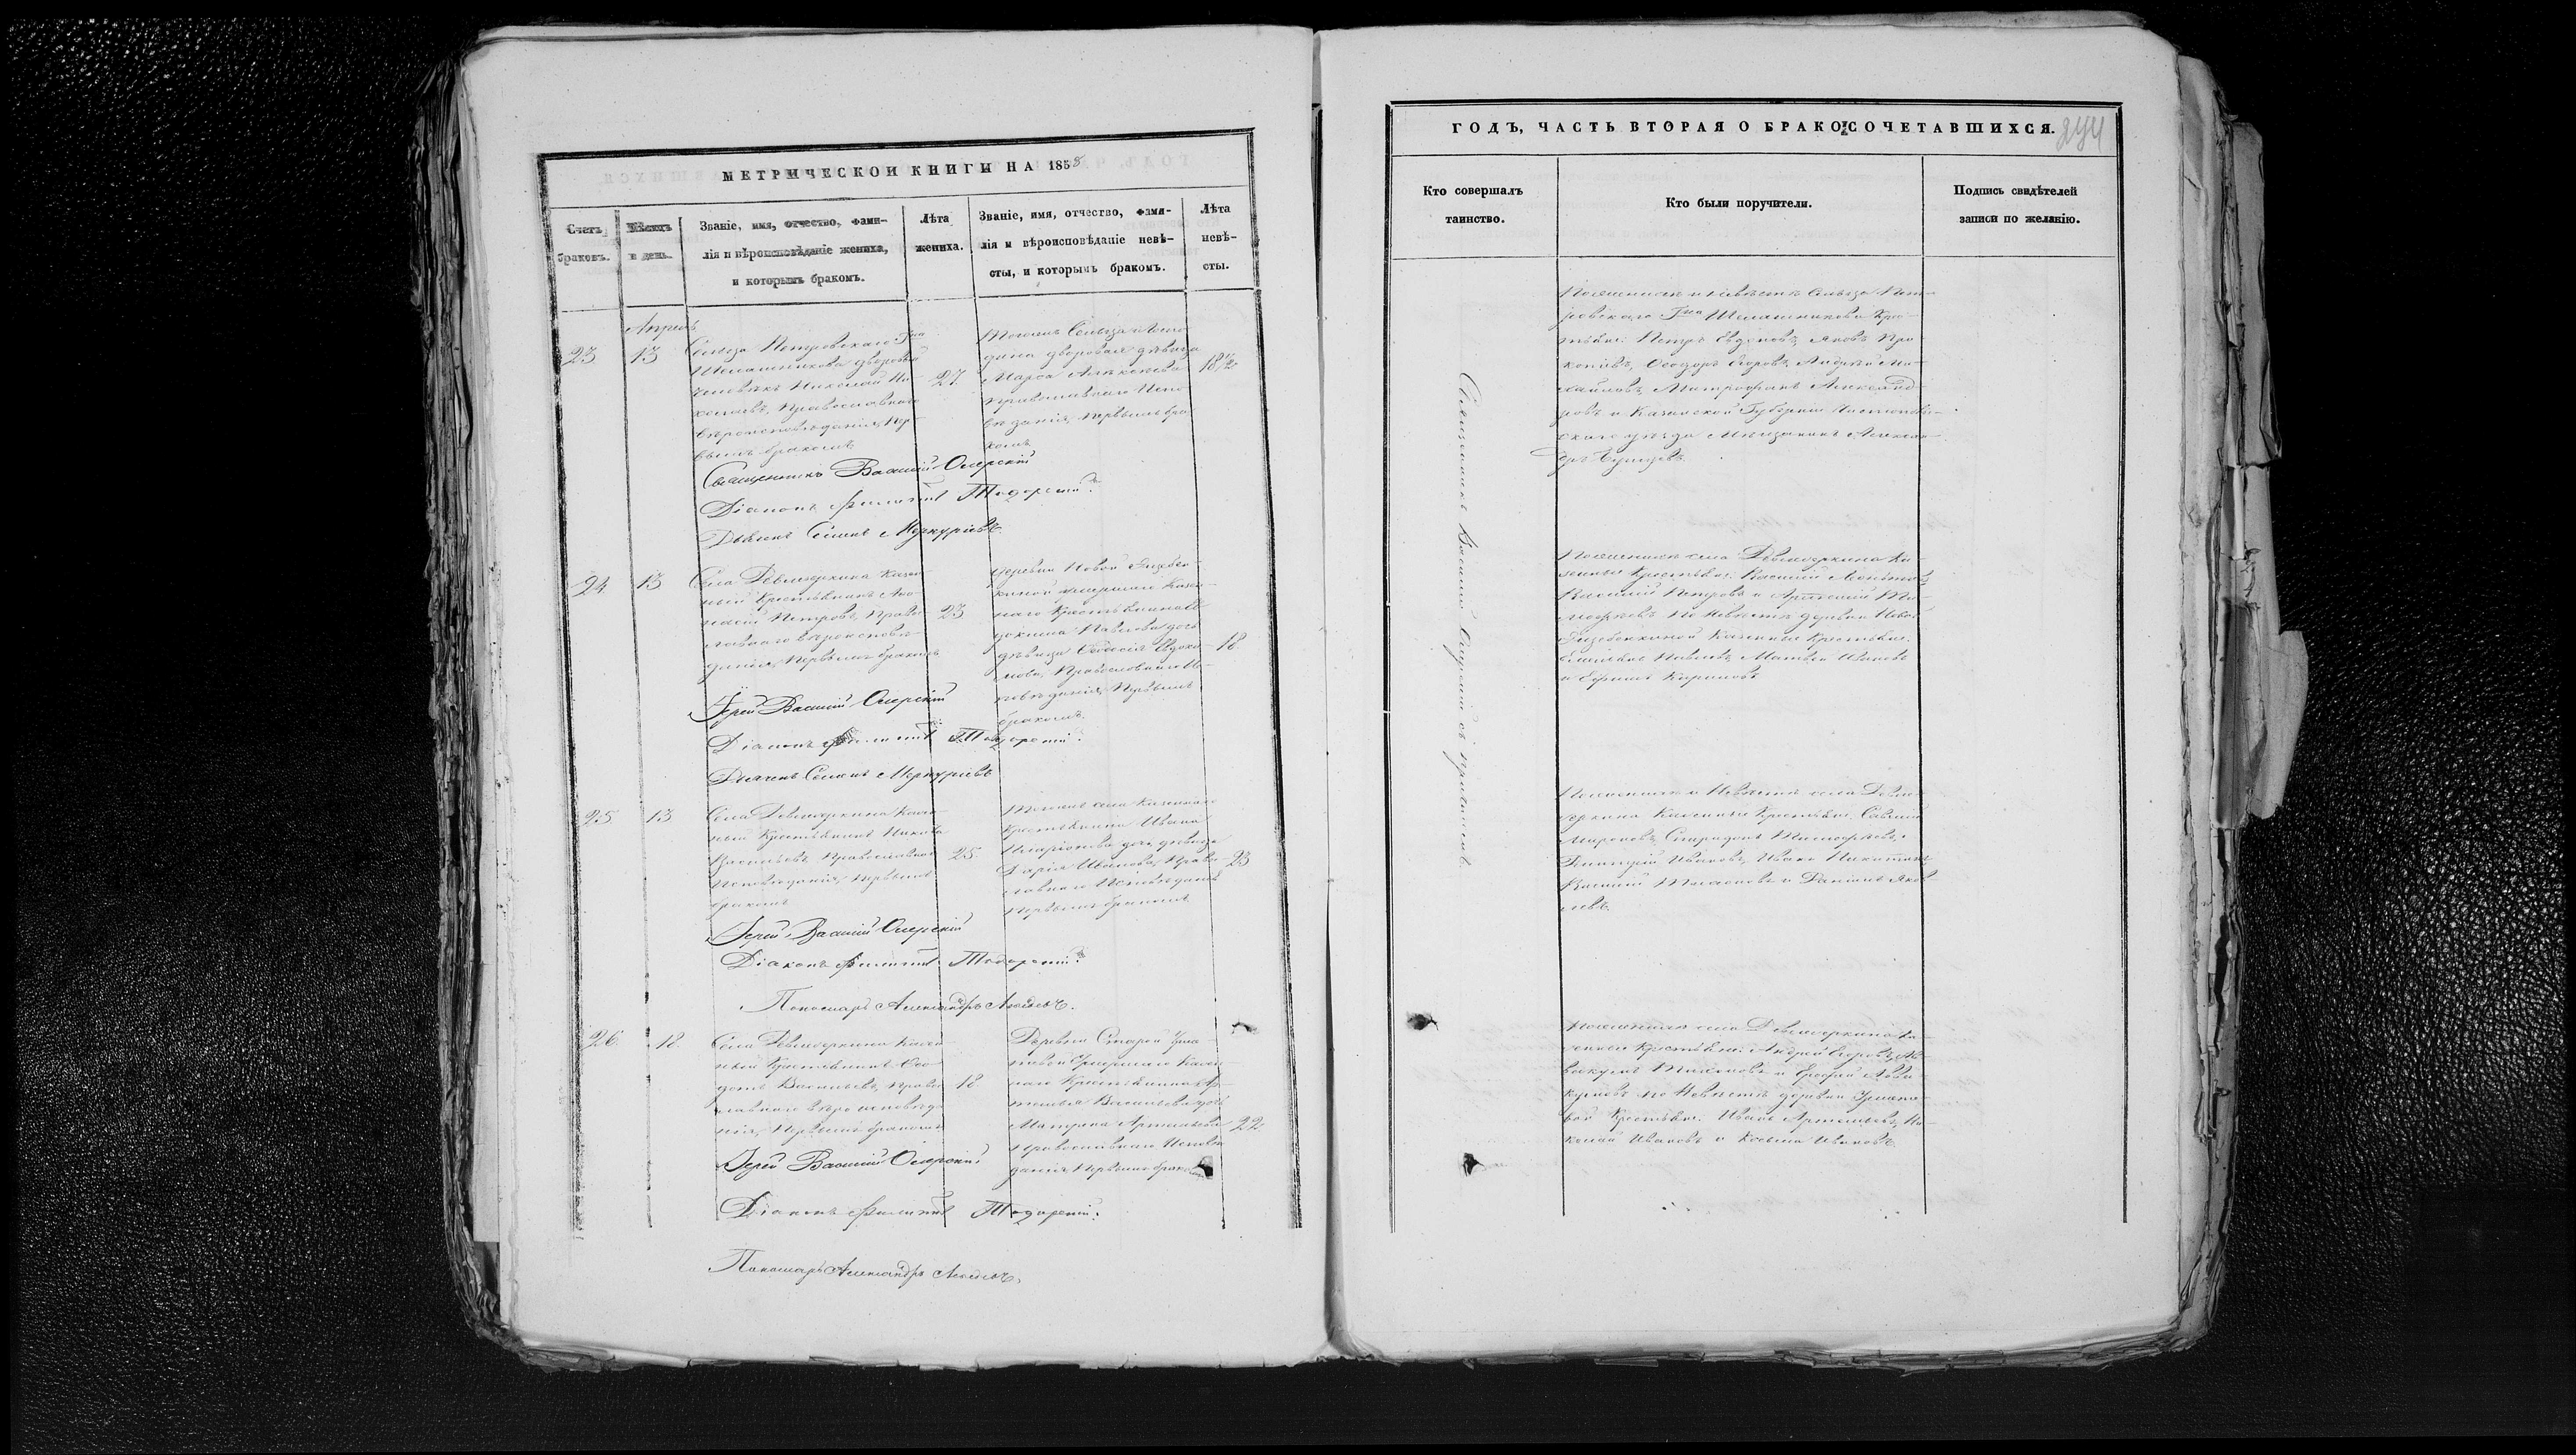 МЕТРИЧЕСКОЙ КНИГИ НА 1858
Счетъ браковъ.
Мѣсяцъ и день.
Званіе, имя, отчество, фами-
лія и вѣроисповѣданіе жениха,
и которымъ бракомъ.
Лѣта жениха.
Званіе, имя, отчество, фами-
лія и вѣроисповѣданіе невѣ-
сты, и которымъ бракомъ.
Лѣта невѣ-
сты.
Апрель
23
13
Сельца Петровскаго Гна
дворовый
человѣкъ Николай Ни-
колаевъ, Православнаго
вѣроисповѣданія, пер-
вымъ бракомъ
27.
Тогожъ Сельца
дворовая дѣвица
Марфа Алексѣева
Православнаго Испо
вѣданія, первымъ бра
комъ,
18 1/2
Священникъ Василій Озерскій
Діаконъ Филиппъ
Дьячекъ Семенъ Меркурьевъ.
24.
13
Села Девлезеркина Казен-
ный Крестьянинъ
Петровъ, Право
славнаго вѣроисповѣ-
данія, первымъ бракомъ
23
деревни Новой
умершаго Казен-
наго Крестьянина Ев
докима Павлова дочь
дѣвица Ѳедосія Евдоки-
мова, Православнаго Ис-
повѣданія, первымъ
бракомъ.
18
Іерей Василій Озерскій
Діаконъ Филиппъ
Дьячекъ Семенъ Меркурьевъ
25.
13
Села Девлезеркина Казен-
ный Крестьянинъ Никита
Васильевъ, Православнаго
Исповѣданія, первымъ
бракомъ
25.
Тогожъ села Казеннаго
Крестьянина Ивана
Иларіонова дочь дѣвица
Дарія Иванова, Право
славнаго Исповѣданія
первымъ бракомъ
23
Іерей Василій Озерскій
Діаконъ Филиппъ
Пономарь Александръ
26.
18.
Села Девлезеркина Казен-
ный Крестьянинъ Ѳео-
дотъ Васильевъ, Право
славнаго вѣроисповѣда
нія, первымъ бракомъ
18
Деревни Старой Урма-
товой умершаго Казен-
наго Крестьянина Ар-
темья Васильева дочь
Матрена Артемьева
Православнаго Исповѣ
данія, первымъ бракомъ
22
Іерей Василій Озерскій
Діаконъ Филиппъ
Пономарь Александръ
ГОДЪ, ЧАСТЬ ВТОРАЯ О БРАКОСОЧЕТАВШИХСЯ.
244
Кто совершалъ
таинство.
Кто были поручители.
Подпись свидѣтелей
записи по желанію.
Священникъ Василій Озерскій съ причтомъ.
По женихѣ и невѣстѣ Сельца Пет-
ровскаго Гна Кре-
стьяне: Петръ Евдокимовъ, Яковъ Про
копіевъ, Ѳеодоръ Егоровъ, Андрей Ми-
хайловъ, Митрофанъ Александ-
ровъ и Казанской Губерніи Чистополь-
скаго уѣзда Мѣщанинъ Алексан-
дръ
По женихѣ села Девлезеркина Ка-
зенные Крестьяне: Василій
Василій Петровъ и Артемій Ти-
мофѣевъ по невѣстѣ деревни Новой
Казенные Крестьяне:
Емельянъ Павловъ, Матвей Ивановъ
и Ефимъ
По женихѣ и невѣстѣ села Девле-
зеркина Казенные Крестьяне: Савелій
Мироновъ, Спиридонъ Тимофѣевъ,
Дмитрій Ивановъ, Иванъ Никитинъ
Василій и Даніилъ Яков
левъ.
По женихѣ села Девлезеркина Ка-
зенные Крестьяне: Андрей Егоровъ, Ав-
вакумъ Тихоновъ и Ерофей Авва-
кумовъ по невѣстѣ деревни Урмато-
вой Крестьяне: Иванъ Артемьевъ, Ни-
колай Ивановъ и Косьма Ивановъ